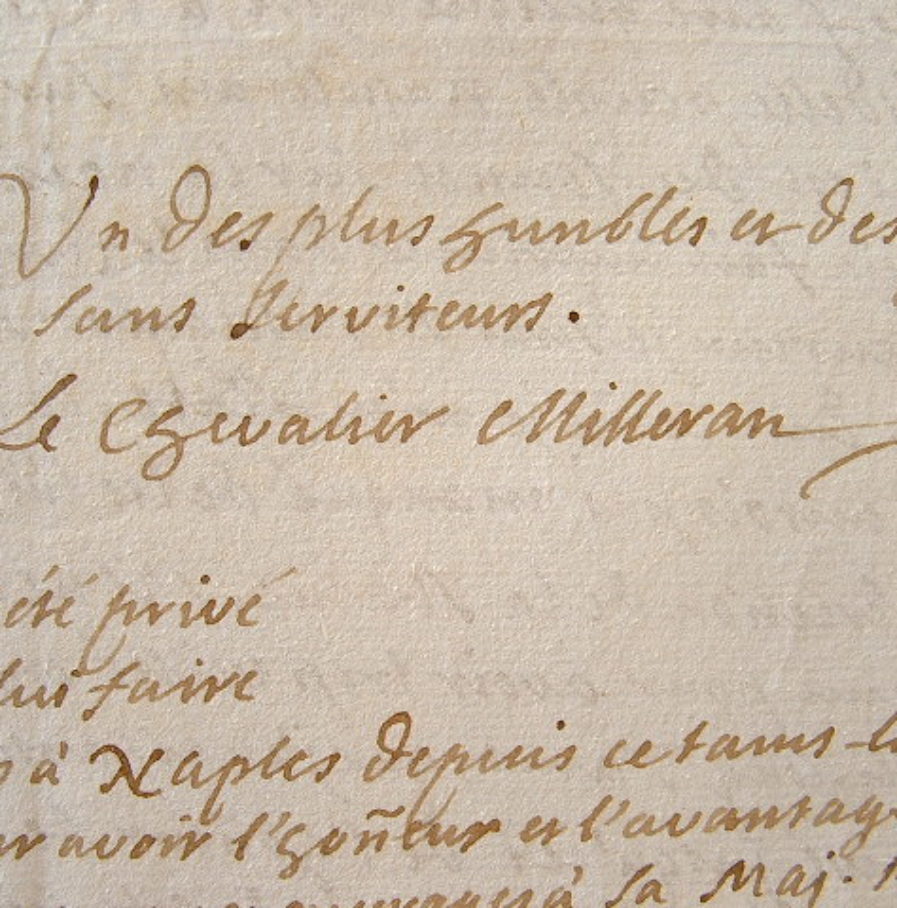 Un des plus humbles et des
sans serviteurs.
Le Chevalier Milleran
été privé
lui faire
à Naples depuis ce tams-l
avoir l'hoñeur et l'avantag
à sa Maj.